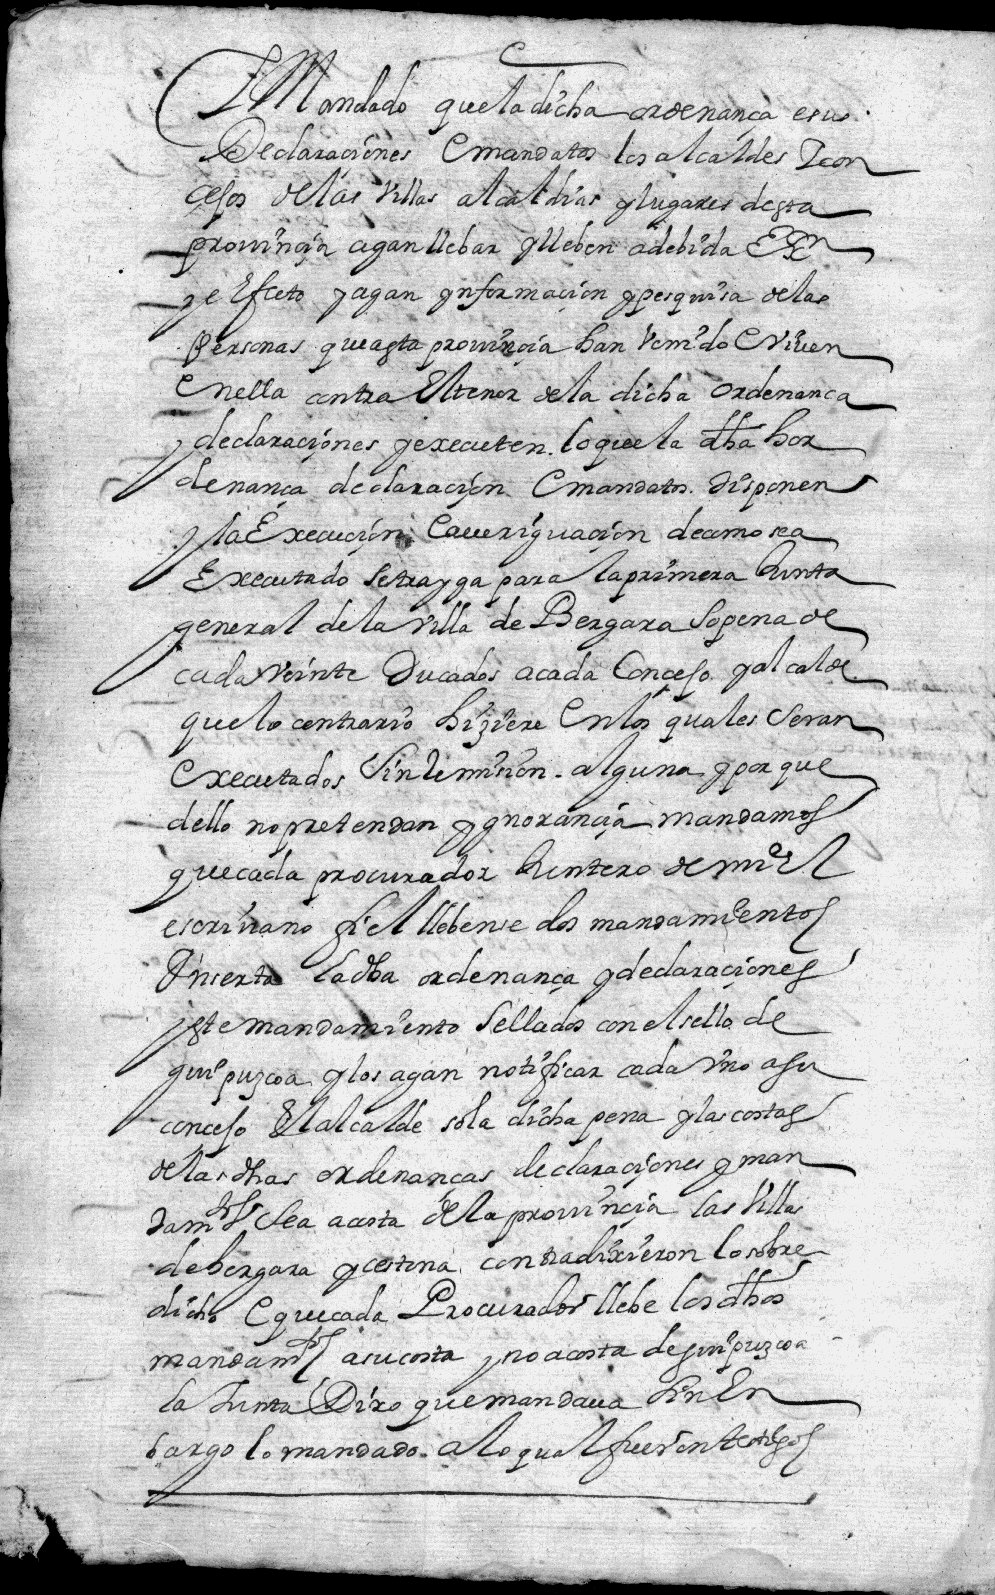 I Mandado que la dicha ordenança e sus
Declaraciones E mandatos los alcaldes I con
cejos de las Villas alcaldias y lugares desta
provinçia agan llebar y lleben a debida Exon
y e Efeto y agan ynformaçion y pesquisa de las
Personas que a esta provinçia han Venido E viven
En ella contra El tenor de la dicha ordenança
y declaraçiones y executen lo que la dha hor
denança declaraçion E mandatos disponen
y la Execuçion E averiguaçion de como sea
Executado se trayga para la primera Junta
general de la Villa de Bergara so pena de
cada veinte Ducados a cada Concejo y alcalde
que lo contrario hiziere En los quales seran
Executados sin Remision alguna y por que
dello no pretendan ygnorancia mandamos
que cada procurador Juntero de mi El
escrivano fiel llebense dos mandamientos
Ynserta la dha ordenança y declaraçiones
y este mandamiento sellados con el sello de
guipuzcoa y los agan notificar cada vno a su
concejo El alcalde so la dicha pena y las costas
de las dhas ordenanças declaraçiones y man
damtos sea a costa de la provinçia las Villas
de bergara y cestona contradixieron lo sobre
dicho E que cada Procurador llebe los dhos
mandamtos a su costa y no a costa de guipuzcoa
la Junta Dixo que mandava sin En
bargo lo mandado a lo qual fueron testigos